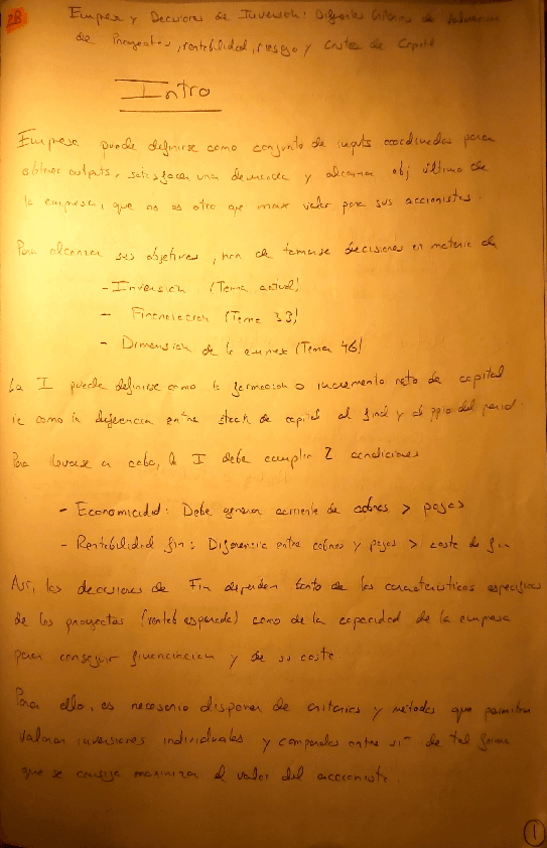 2B
Empresa y Decisiones de Inversión: Diferentes Criterios de valoración
de Proyectos, rentabilidad, riesgo y Costes de Capital
Intro
Empresa puede definirse como conjunto de inputs coordinados para
obtener outputs, satisfacer una demanda y alcanzar obj último de
la empresa, que no es otro que max valor para sus accionistas.
Para alcanzar sus objetivos, han de tomarse decisiones en materia de
- Inversión (Tema actual)
- Financiación (Tema 33)
- Dimensión de la empresa (Tema 46)
La I puede definirse como la formación o incremento neto de capital
ie como la diferencia entre stock de capital al final y al ppio del period.
Para llevarse a cabo, la I debe cumplir 2 condiciones
- Economicidad: Debe generar corriente de cobros > pagos
- Rentabilidad fin: Diferencia entre cobros y pagos > coste de fin
Así, las decisiones de Fin dependen tanto de las características específicas
de los proyectos (rentab esperada) como de la capacidad de la empresa
para conseguir financiación y de su coste.
Para ello, es necesario disponer de criterios y métodos que permitan
valorar inversiones individuales y compararlas entre sí de tal forma
que se consiga maximizar el valor del accionista.
1